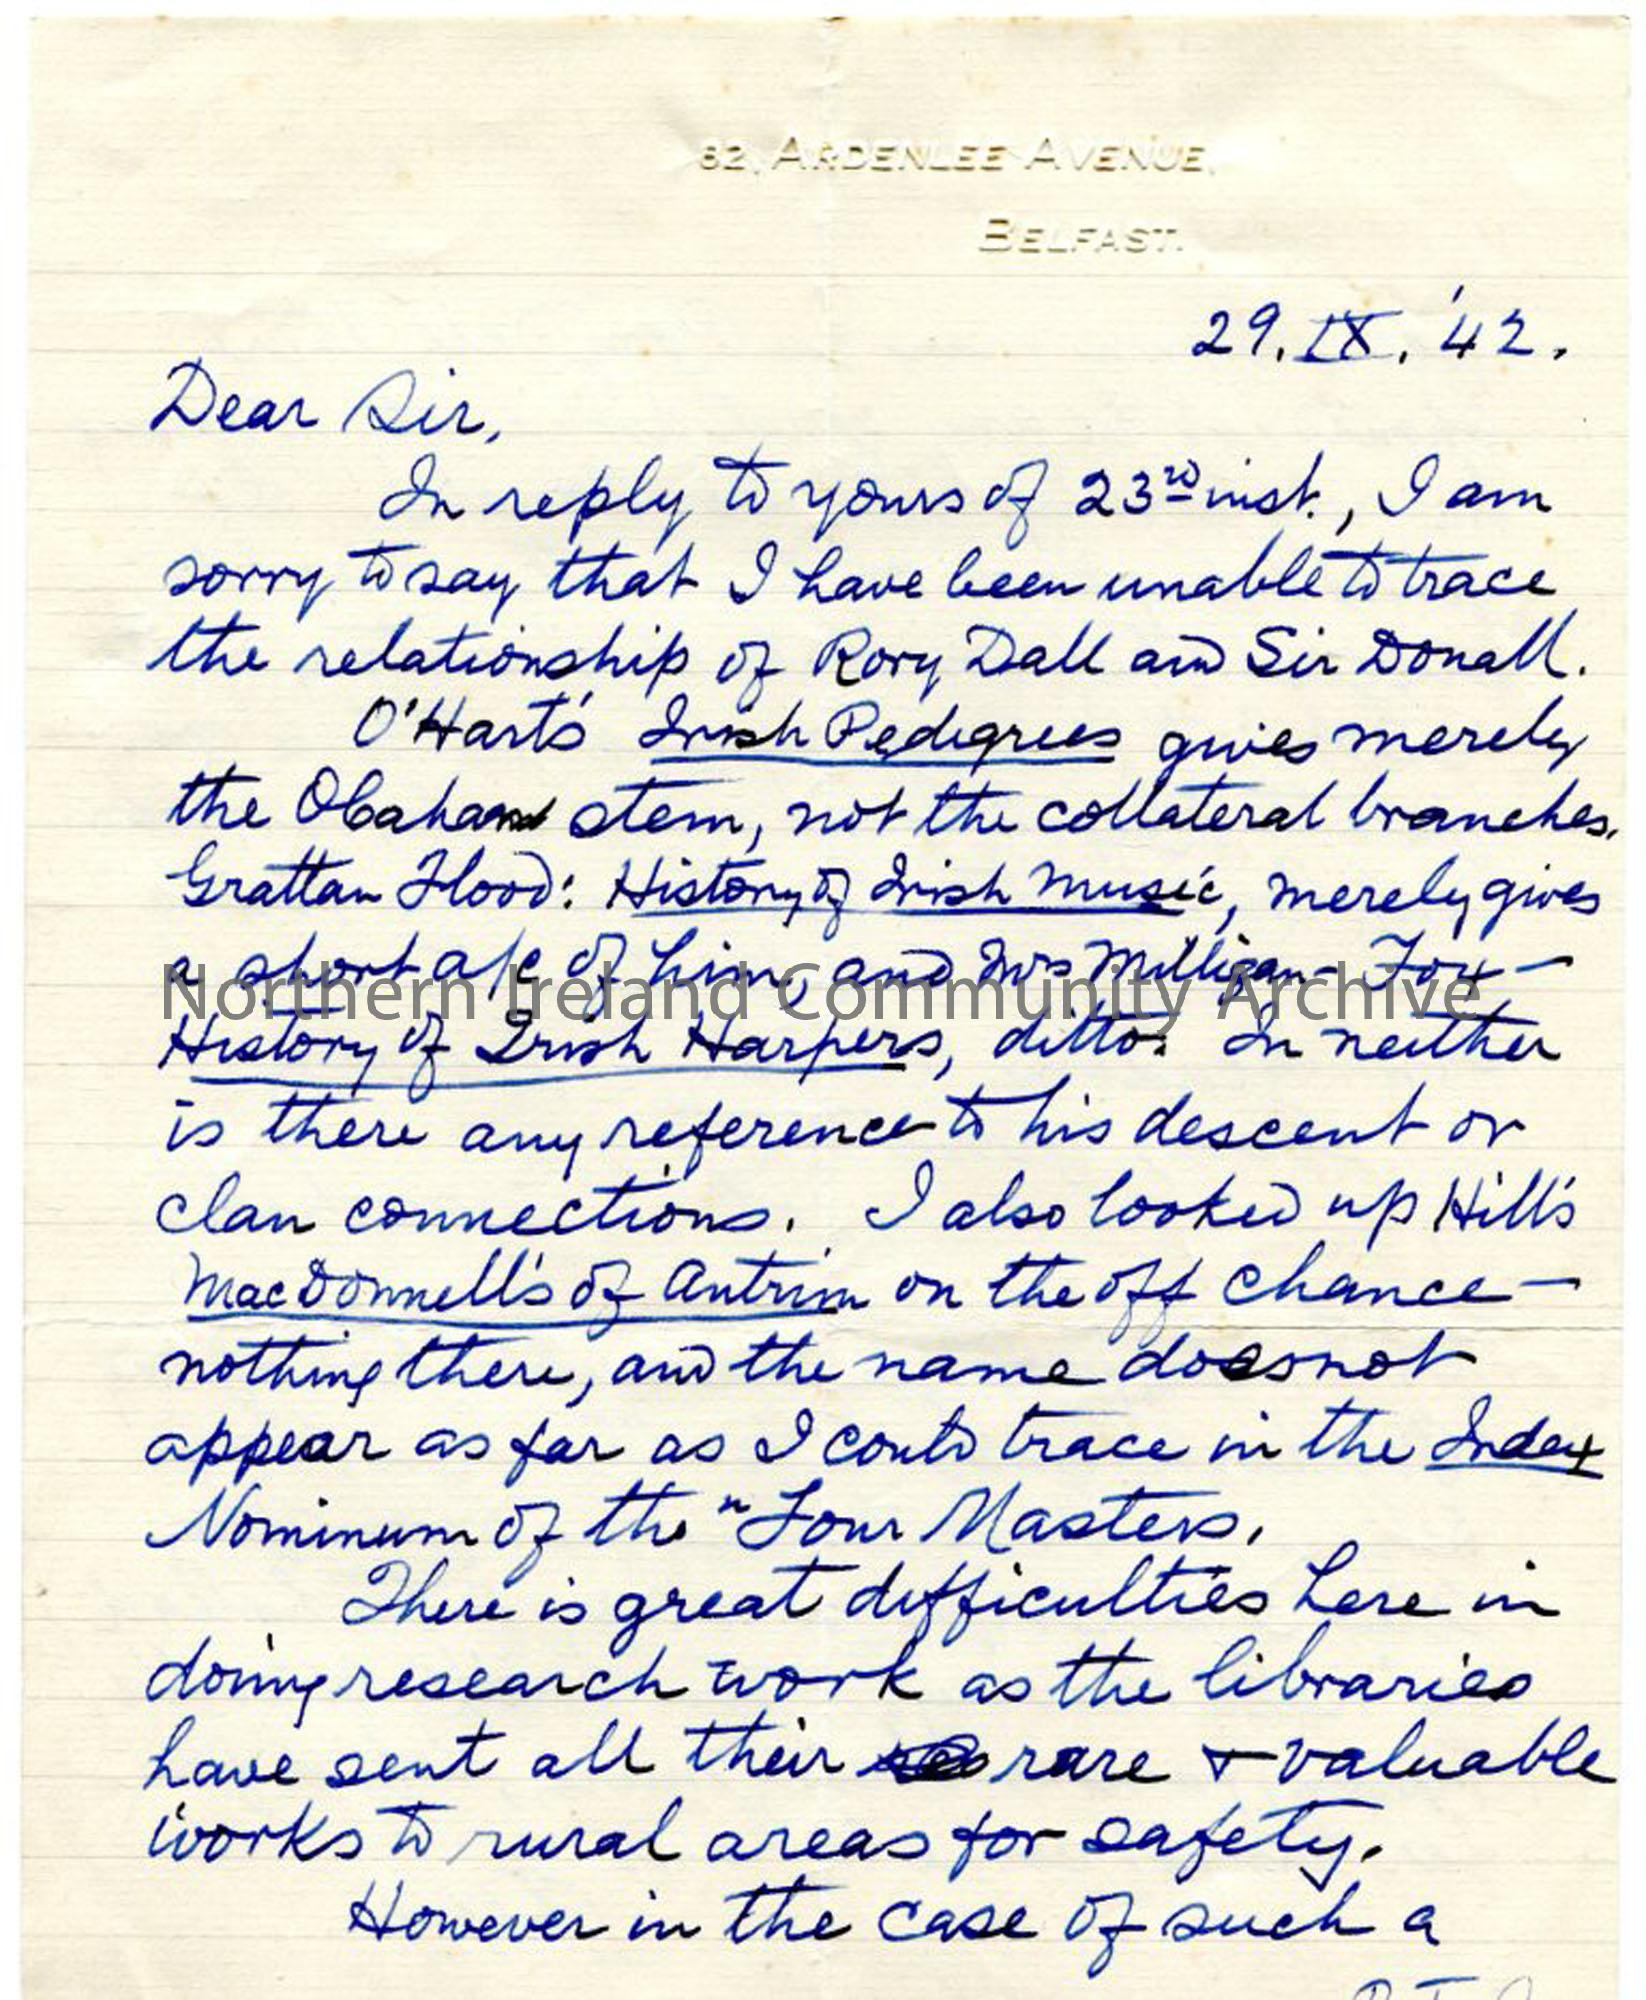 82, ARDENLEE AVENUE,
BELFAST.
29.IX.'42.
Dear Sir,
In reply to yours of 23rd inst., I am
sorry to say that I have been unable to trace
the relationship of Rory Dall and Sir Donall.
O'Hart's Irish Pedigrees gives merely
the Ocahans stem, not the collateral branches.
Grattan Flood: History of Irish Music, merely gives
a short a/c of him, and Mrs Milligan-Fox —
Northern Ireland Community Archive
History of Irish Harpers, ditto. In neither
is there any reference to his descent or
clan connections. I also looked up Hill's
MacDonnell's of Antrim on the off chance —
nothing there, and the name does not
appear as far as I could trace in the Index
Nominum of the "Four Masters.
There is great difficulties here in
doing research work as the libraries
have sent all their rare & valuable
works to rural areas for safety.
However in the case of such a
P.T.O